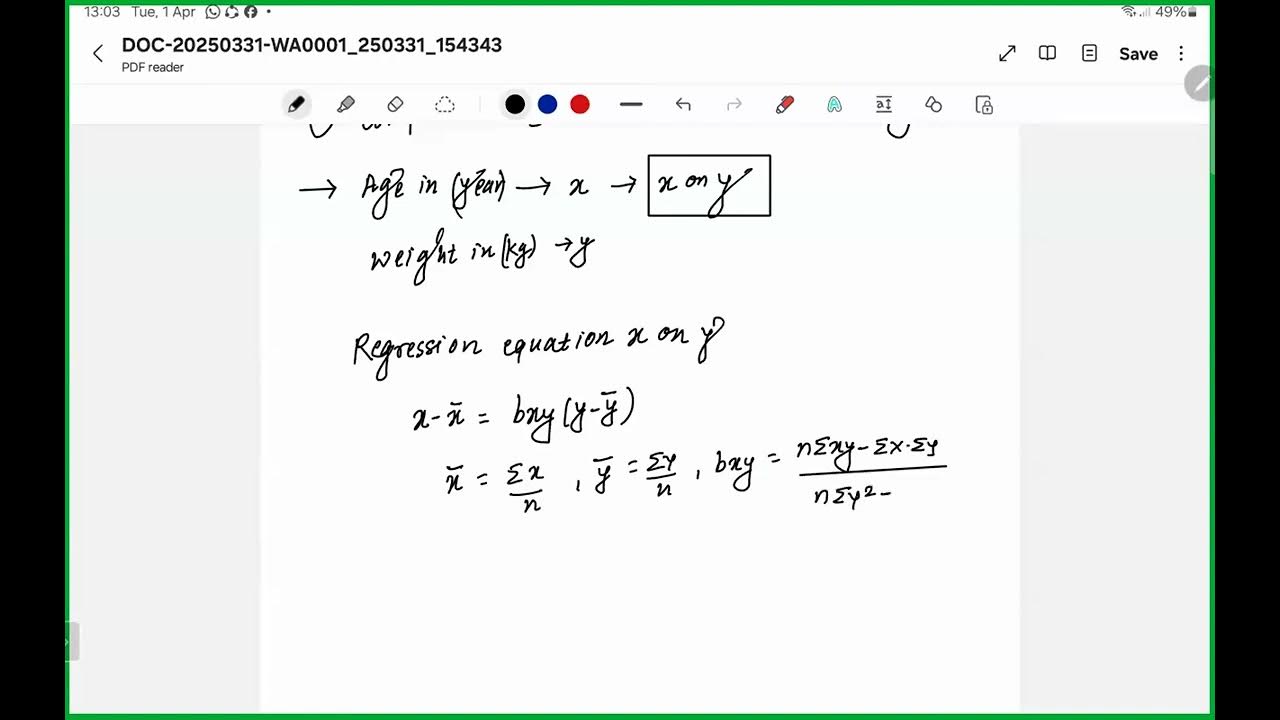 13:03 Tue, 1 Apr 49%
DOC-20250331-WA0001_250331_154343
PDF reader
Save
→ Age in (year) → x → x on y
weight in (kg) → y
Regression equation x on y
x - x̄ = bxy (y - ȳ)
x̄ = Σx/n , ȳ = Σy/n , bxy = nΣxy - Σx·Σy / nΣy² -